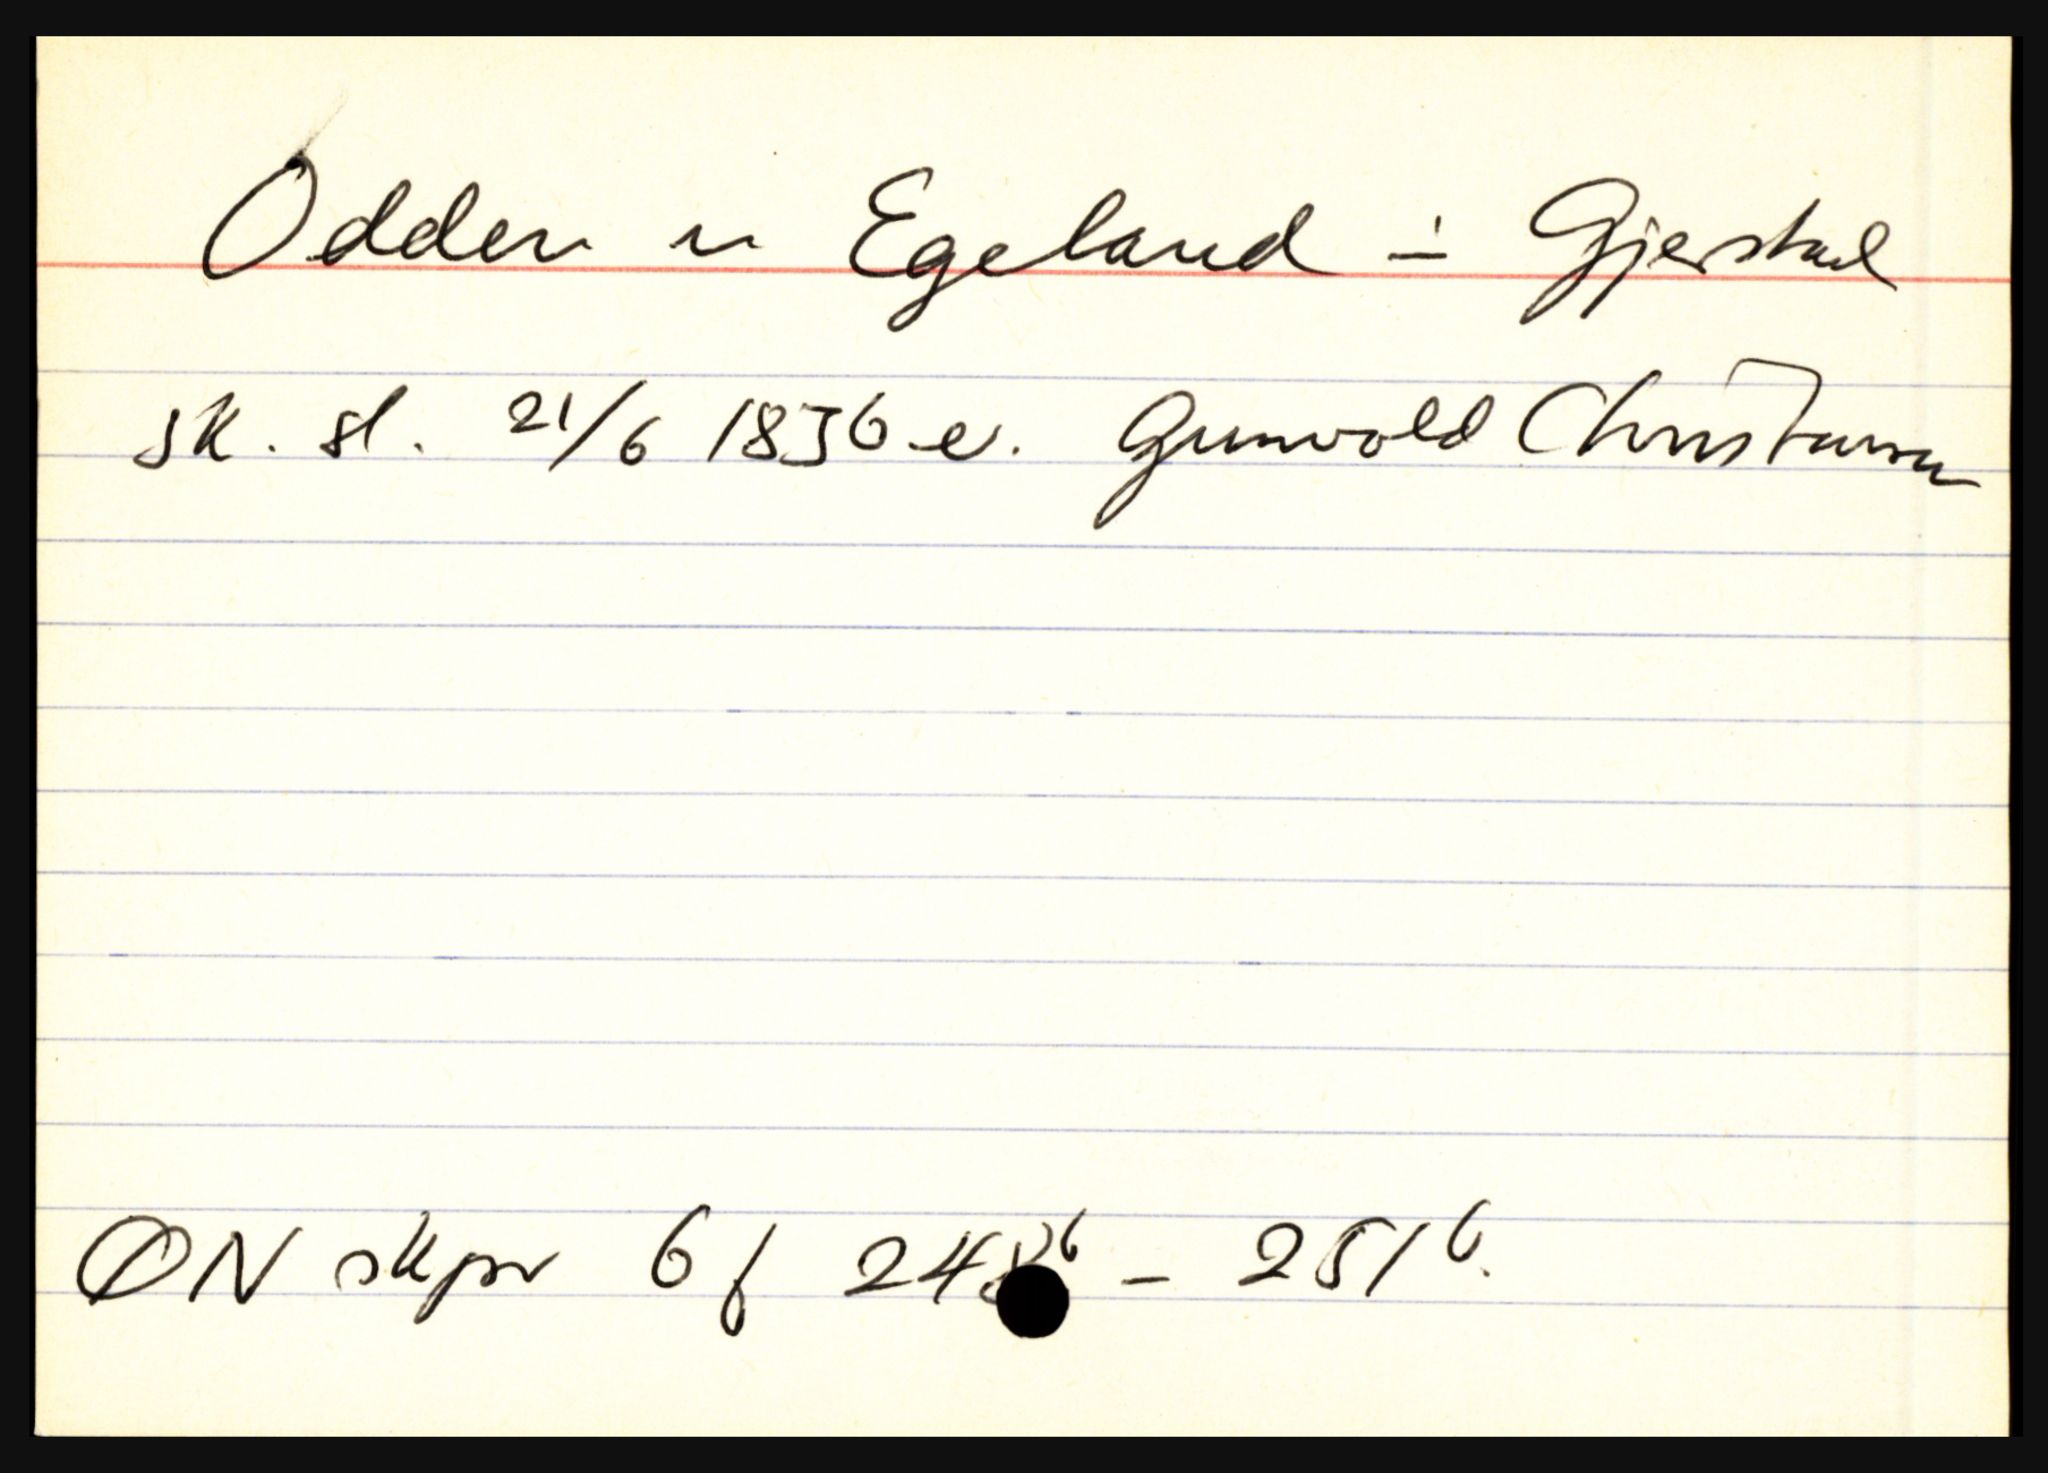 Odden u Egeland i Gjerstad
sk. sl. 21/6 1836 e. Gunvold Christensen
ØN skpr 6 f 248 6 - 251 6.